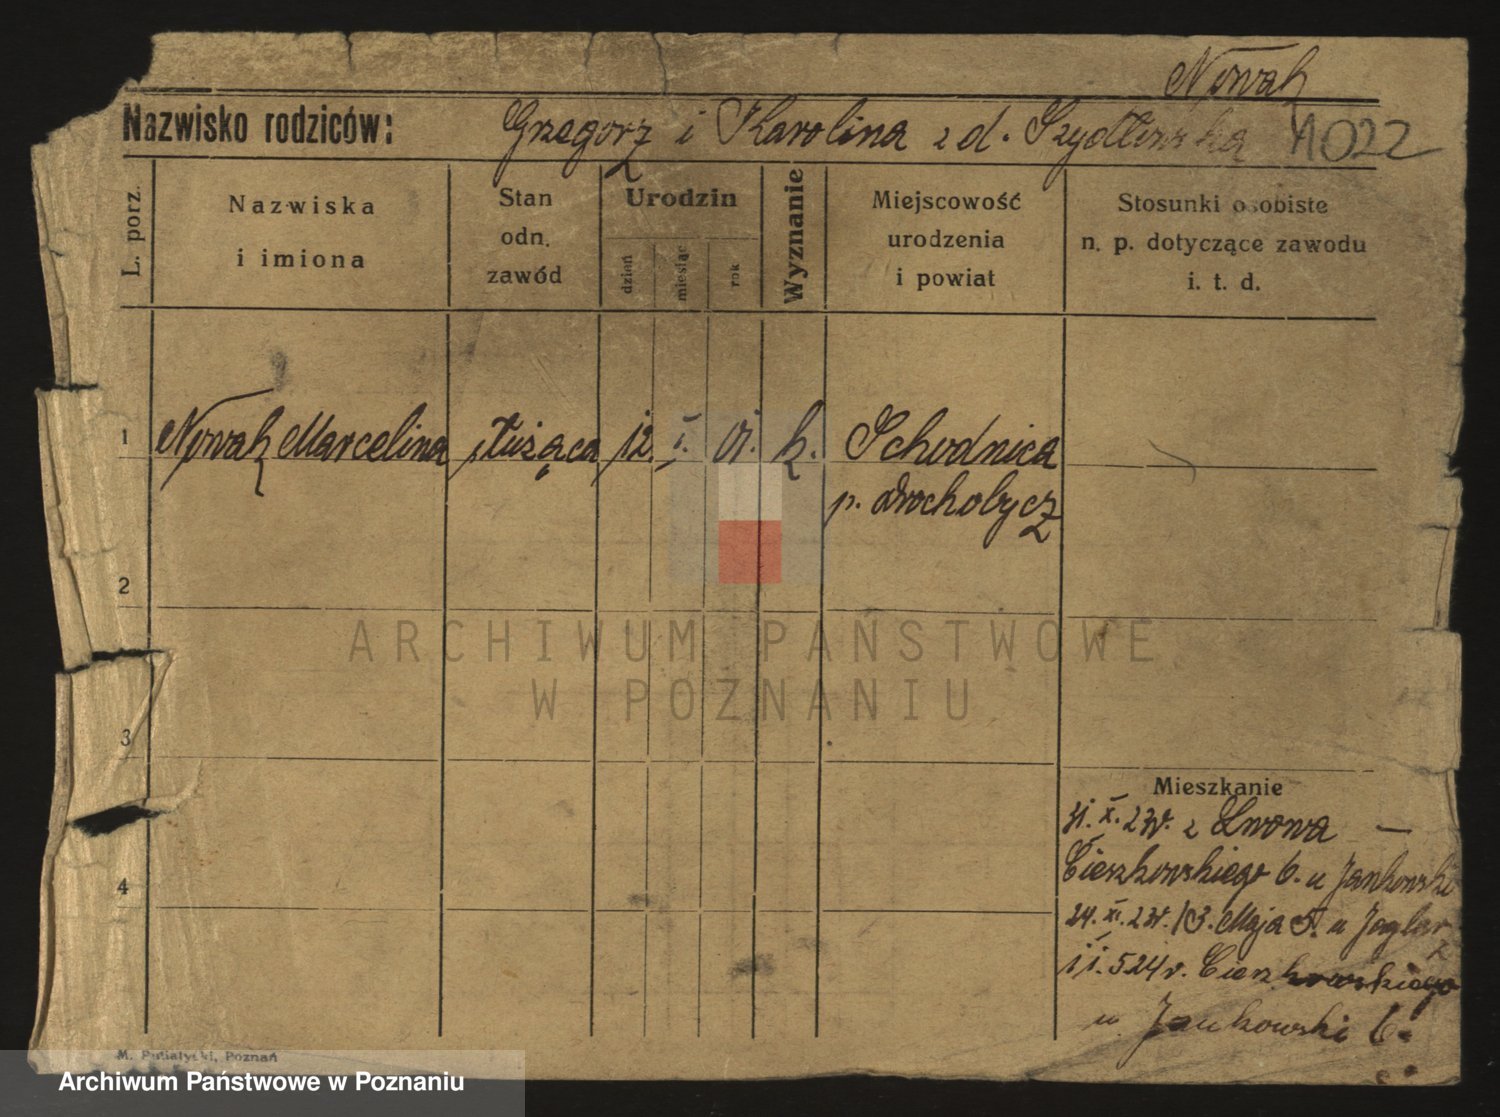 Nowak
Nazwisko rodziców: Grzegorz i Karolina z d. Szydłowska 1022
L. porz.
Nazwiska i imiona
Stan odn. zawód
Urodzin
dzień
miesiąc
rok
Wyznanie
Miejscowość urodzenia i powiat
Stosunki osobiste n. p. dotyczące zawodu i. t. d.
1 Nowak Marcelina służąca 12. I. 01. k. Schodnica
p. Drohobycz
2
3
4
Mieszkanie
X. 23r. z Lwowa —
Cieszkowskiego 6. u Jankowski
24. XI. 23r. 3. Maja 5. u
524r. Cieszkowskiego
u Jankowski 6.
M. Putiatycki, Poznań
ARCHIWUM PAŃSTWOWE
W POZNANIU
Archiwum Państwowe w Poznaniu